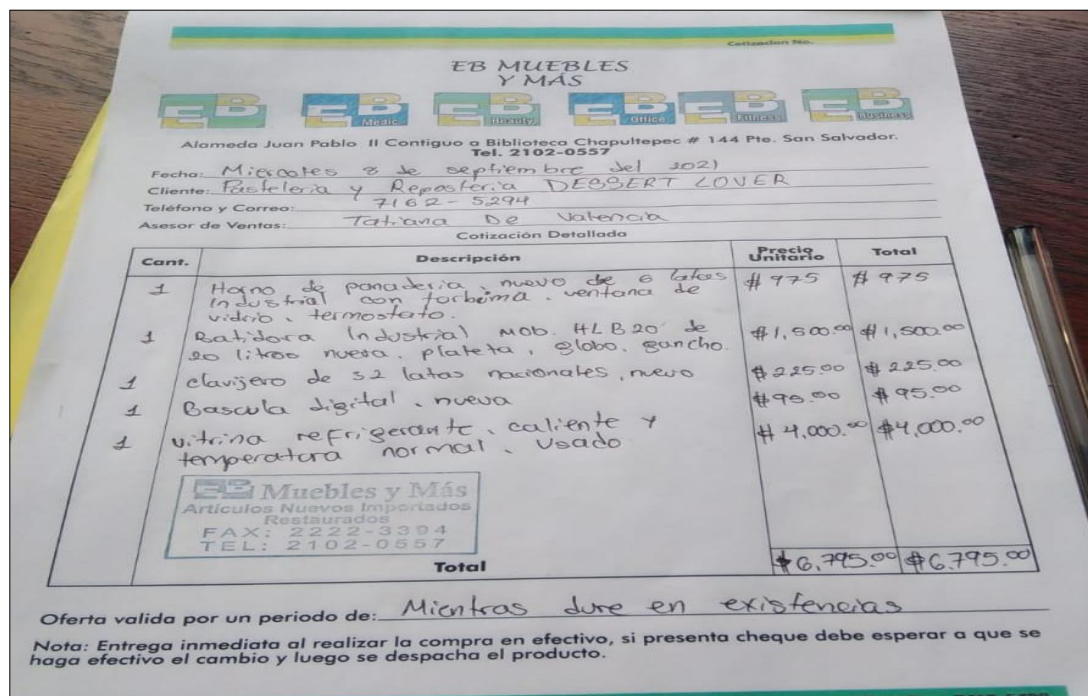 Cotizacion No.
EB MUEBLES
Y MÁS
EB EB Medic EB Beauty EB Office EB Fitness EB Business
Alameda Juan Pablo II Contiguo a Biblioteca Chapultepec # 144 Pte. San Salvador.
Tel. 2102-0557
Fecha: Miercoles 8 de septiembre del 2021
Cliente: Pasteleria y Reposteria DESSERT LOVER
Teléfono y Correo: 7162-5294
Asesor de Ventas: Tatiana De Valencia
Cotización Detallada
Cant. Descripción Precio Unitario Total
1 Horno de panaderia, nuevo de 6 latas $975 $975
industrial con turbina, ventana de
vidrio, termostato.
1 Batidora Industrial MOD. HLB20 de $1,500.00 $1,500.00
20 litros nueva. plateta, globo, gancho.
1 clavijero de 32 latas nacionales, nuevo $225.00 $225.00
1 Bascula digital, nueva $95.00 $95.00
1 vitrina refrigerante, caliente y $4,000.00 $4,000.00
temperatura normal, usado
EB Muebles y Más
Articulos Nuevos Importados
Restaurados
FAX: 2222-3394
TEL: 2102-0557
Total $6,795.00 $6,795.00
Oferta valida por un periodo de: Mientras dure en existencias
Nota: Entrega inmediata al realizar la compra en efectivo, si presenta cheque debe esperar a que se
haga efectivo el cambio y luego se despacha el producto.